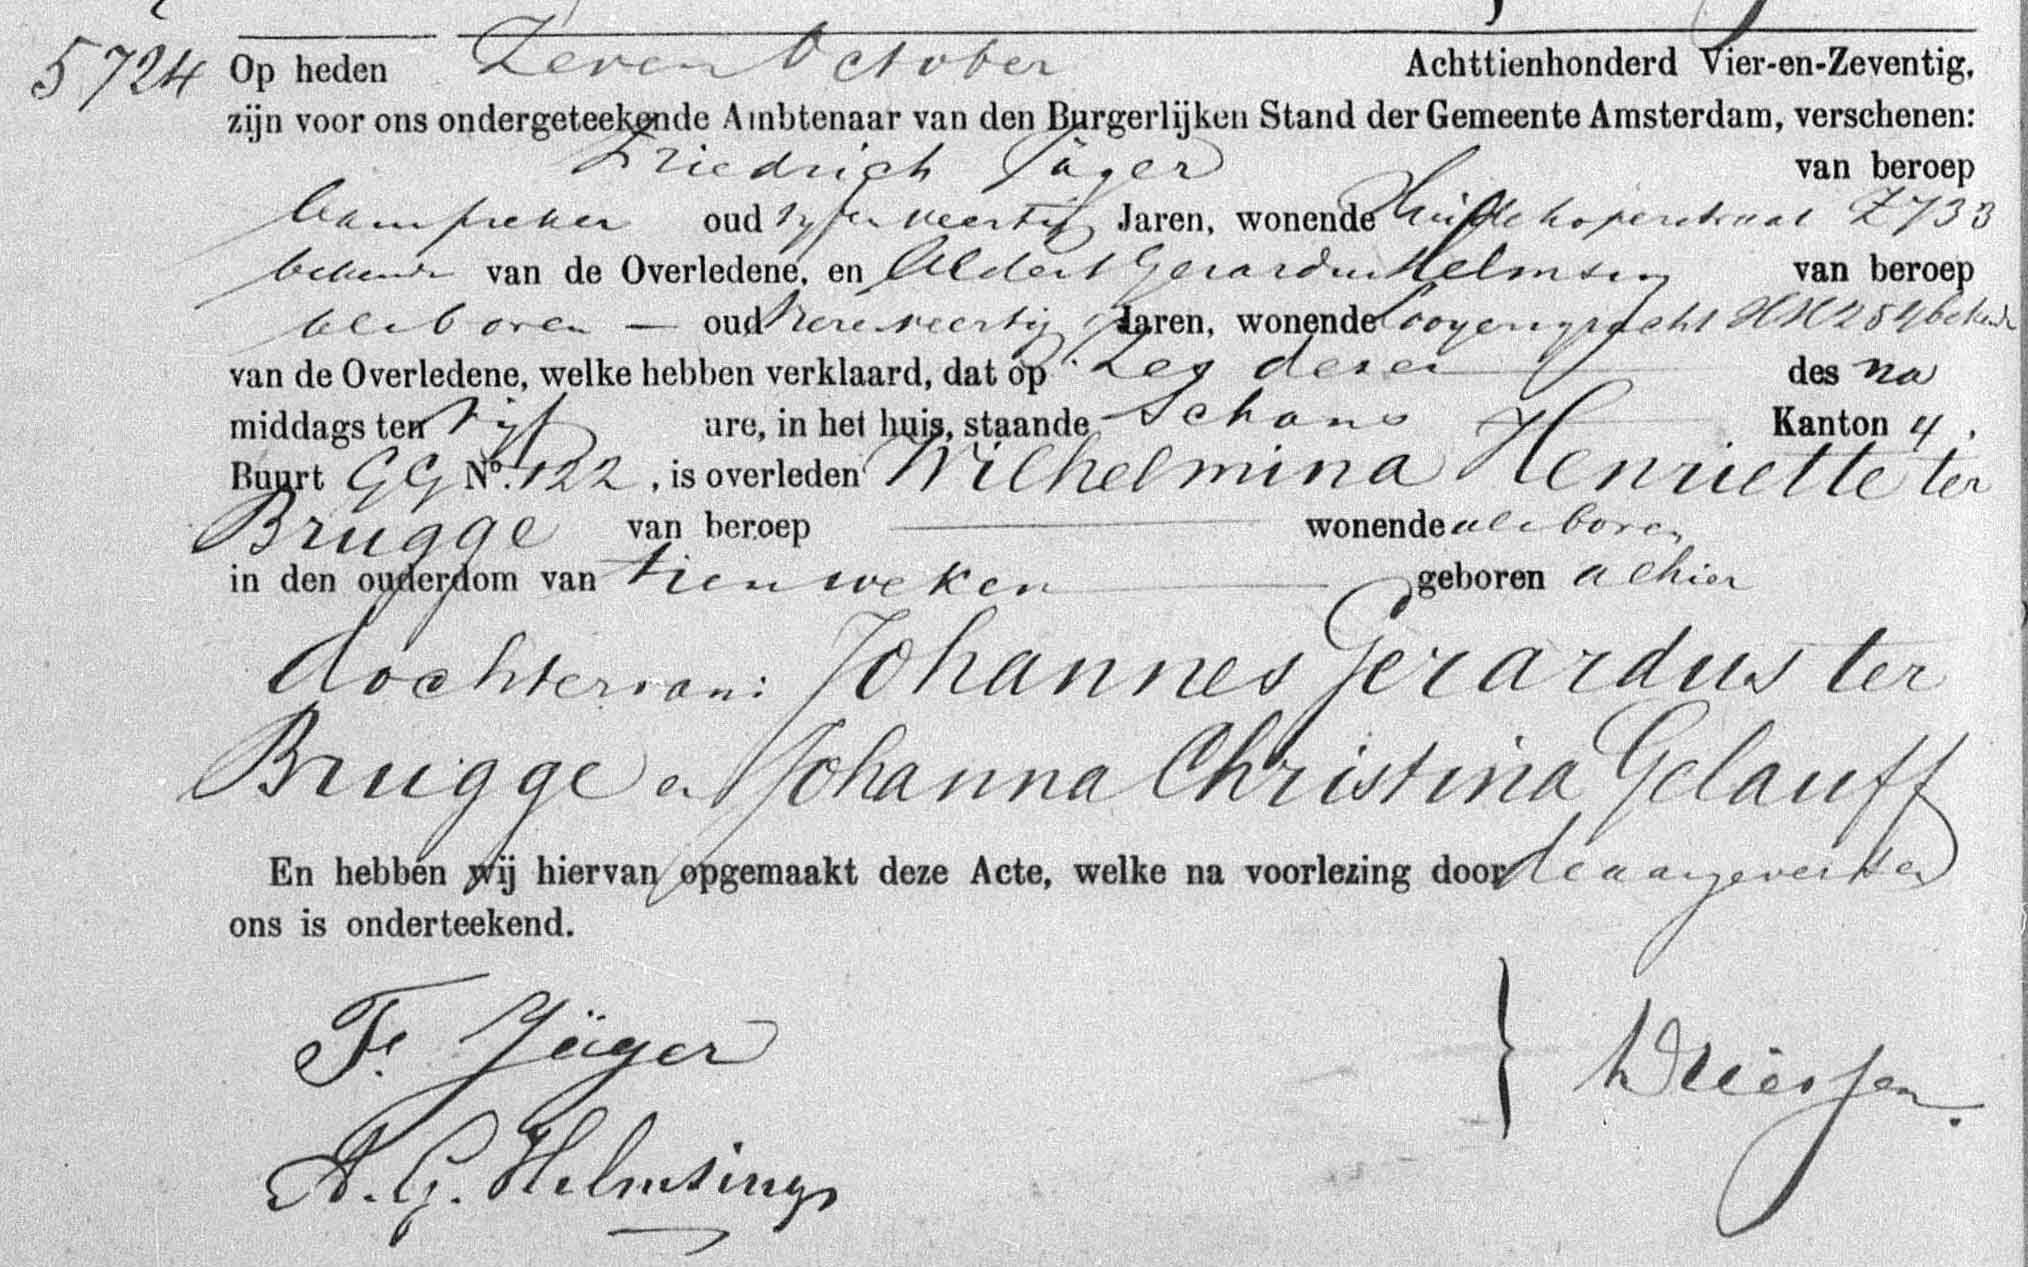 5724 Op heden Zeven October Achttienhonderd Vier-en-Zeventig,
zijn voor ons ondergeteekende Ambtenaar van den Burgerlijken Stand der Gemeente Amsterdam, verschenen:
Friedrich Jäger van beroep
oud vyfenveertig Jaren, wonende Huidekoperstraat Z 733
bekende van de Overledene, en Aldert Gerardus Helmsing van beroep
als boven — oud Jaren, wonende Looyersgracht HH 254 bekende
van de Overledene, welke hebben verklaard, dat op Zes dezer des na
middags ten vijf ure, in het huis, staande Schans Kanton 4,
Buurt GG No. 122, is overleden Wilhelmina Henriette ter
Brugge van beroep wonende als boven
in den ouderdom van tien weken geboren alhier
dochter van: Johannes Gerardus ter
Brugge en Johanna Christina Gelauff
En hebben wij hiervan opgemaakt deze Acte, welke na voorlezing door de aangevers en
ons is onderteekend.
Fr. Jäger
A. G. Helmsing
Driessen.